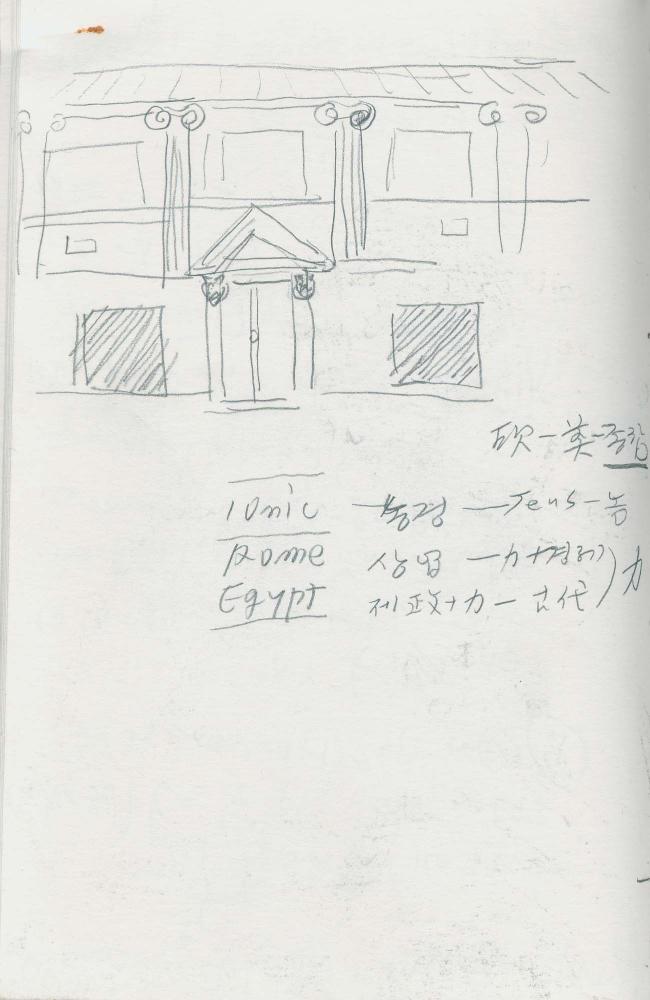 欣-美-종합
Ionic 농경 - Jeus-농
Rome 상업 - 力+경제
Egypt 제政+力 - 古代 ) 力